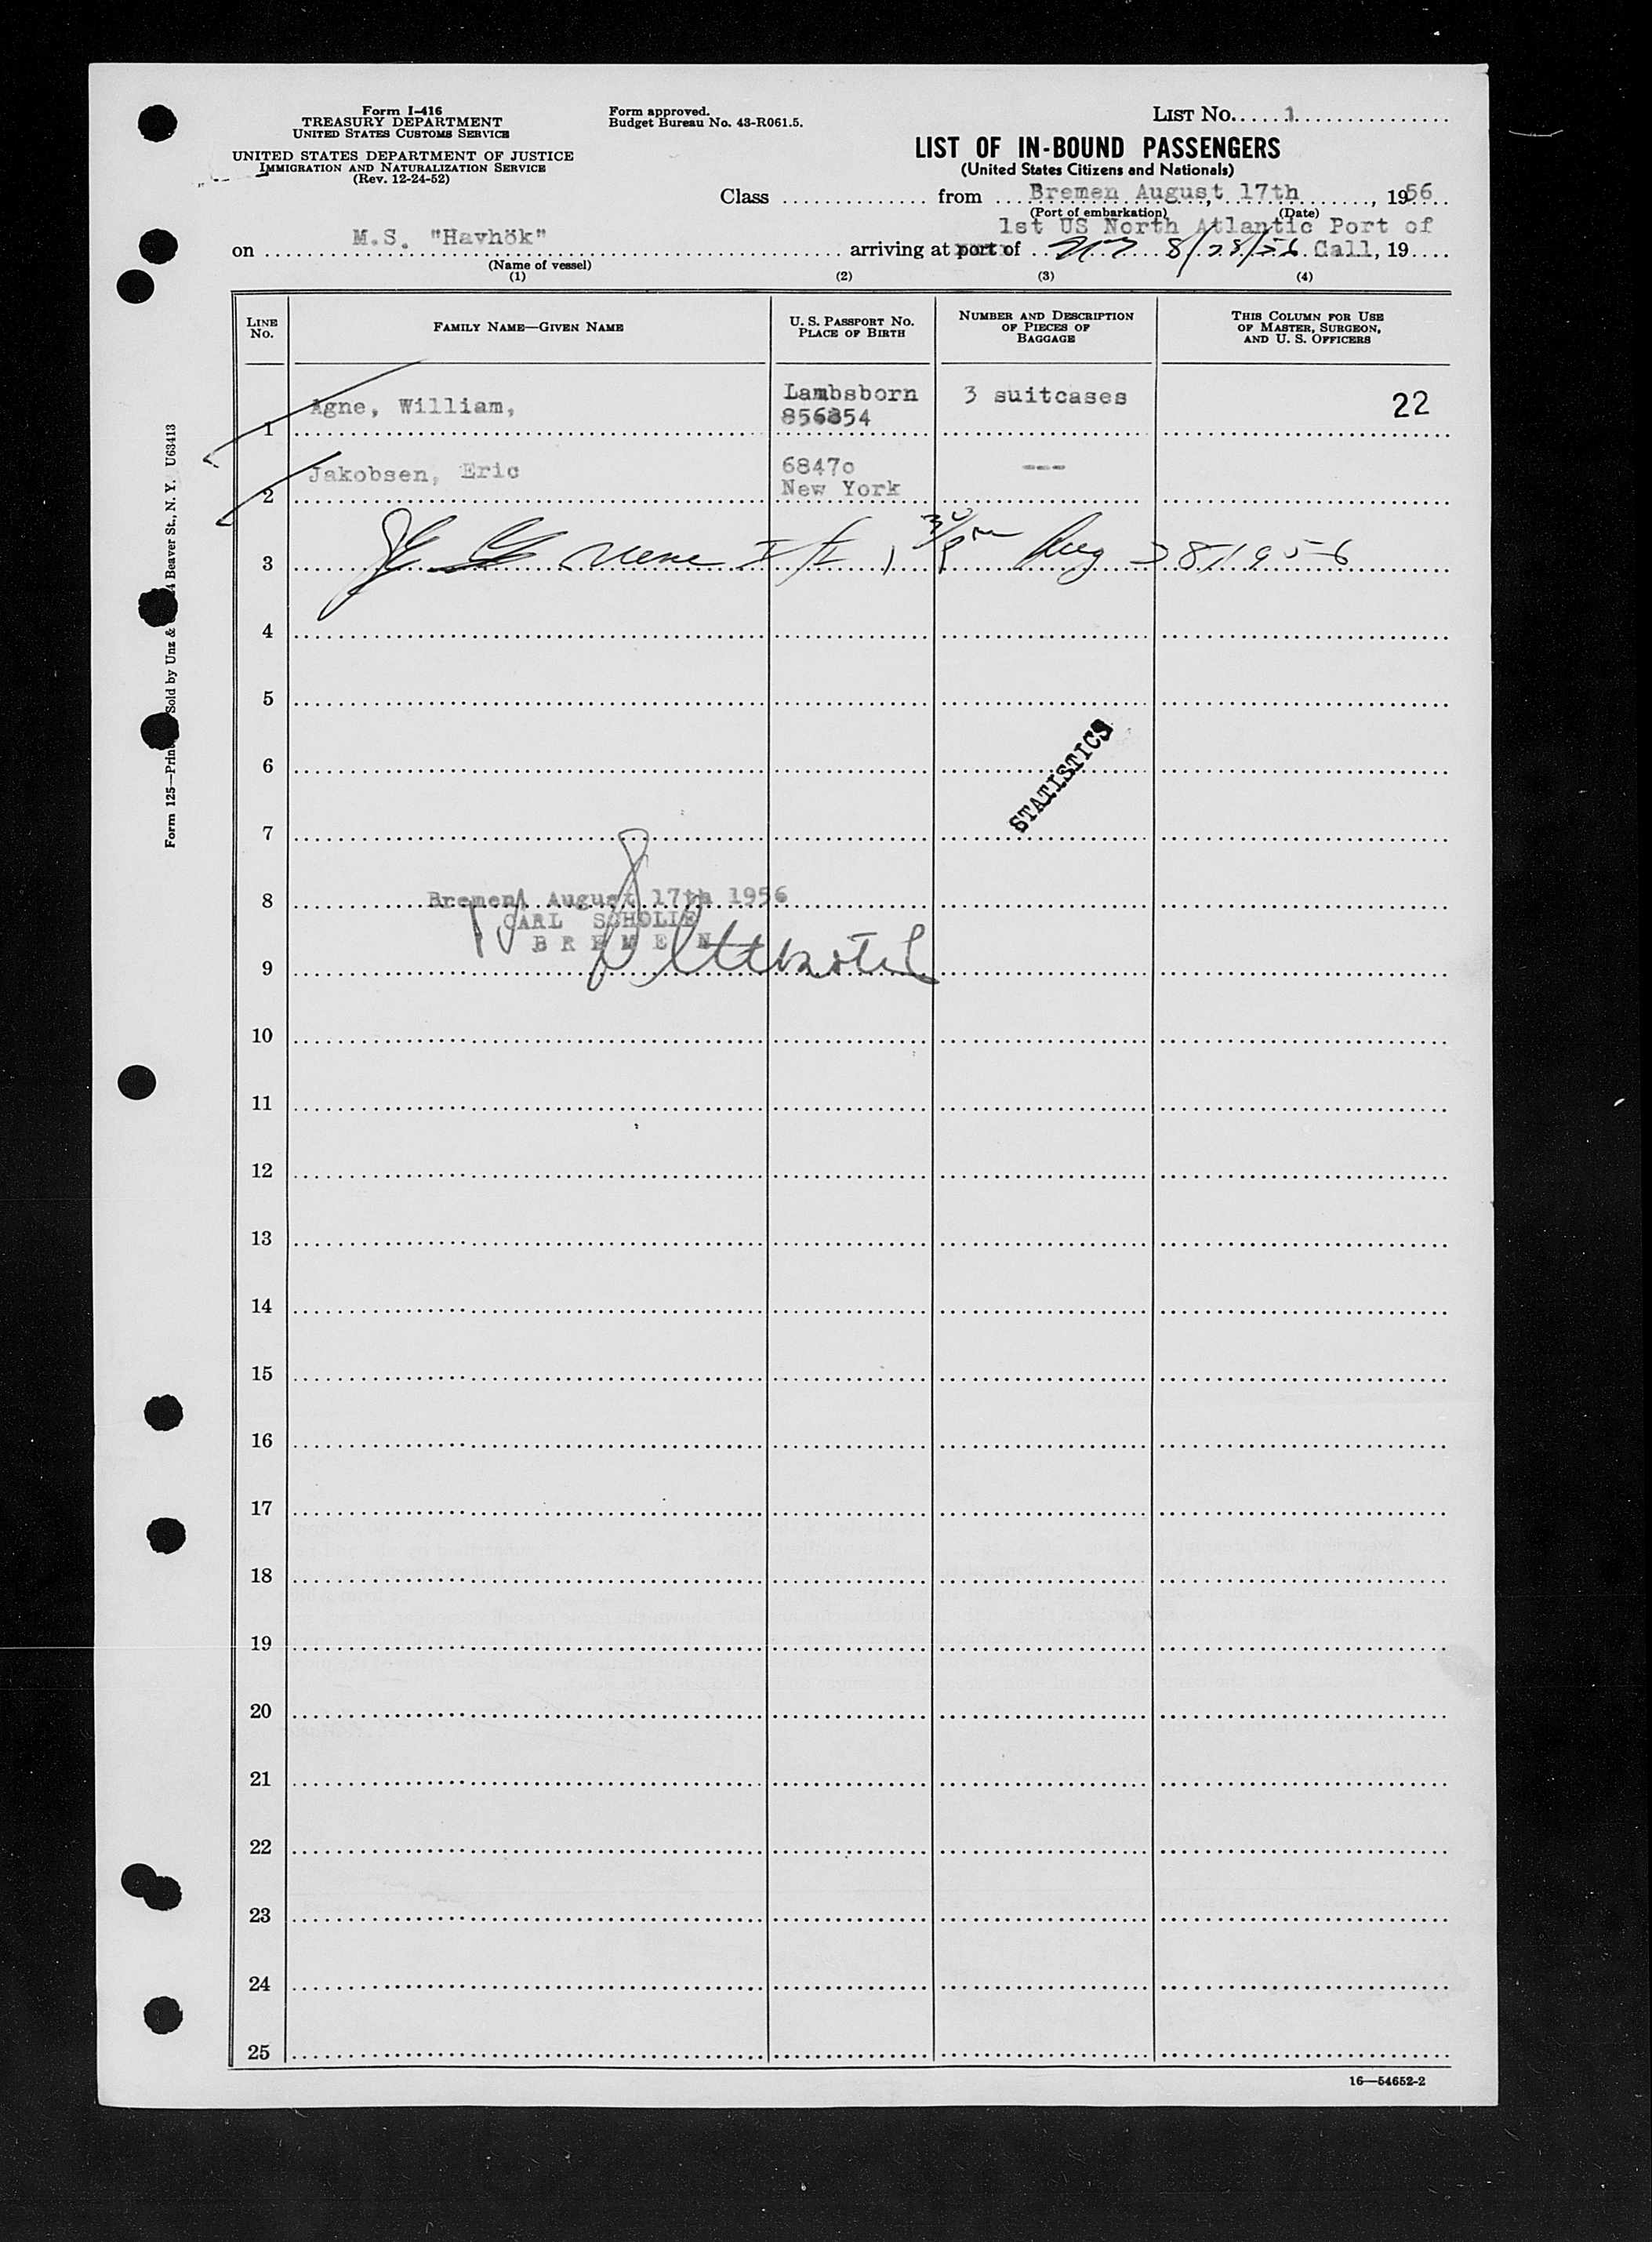 Form I-416
TREASURY DEPARTMENT
UNITED STATES CUSTOMS SERVICE
UNITED STATES DEPARTMENT OF JUSTICE
IMMIGRATION AND NATURALIZATION SERVICE
(Rev. 12-24-52)
Form approved.
Budget Bureau No. 43-R061.5.
LIST No. 1
LIST OF IN-BOUND PASSENGERS
(United States Citizens and Nationals)
Class from Bremen August, 17th, 1956
(Port of embarkation) (Date)
1st US North Atlantic Port of
on M.S. "Havhök" arriving at port of NY 8/28/56 Call, 19
(Name of vessel)
(1) (2) (3) (4)
LINE No. FAMILY NAME—GIVEN NAME U. S. PASSPORT No. PLACE OF BIRTH NUMBER AND DESCRIPTION OF PIECES OF BAGGAGE THIS COLUMN FOR USE OF MASTER, SURGEON, AND U. S. OFFICERS
Lambsborn
1 Agne, William, 856354 3 suitcases 22
2 Jakobsen, Eric 6847o ---
New York
3 Greene Aug 28 1956
4
5
6
STATISTICS
7
8 Bremen, August 17th 1956
CARL SCHOLLE
BREMEN
9
10
11
12
13
14
15
16
17
18
19
20
21
22
23
24
25
16—54652-2
Form 125—Sold by Unz & Beaver St., N. Y. U63413